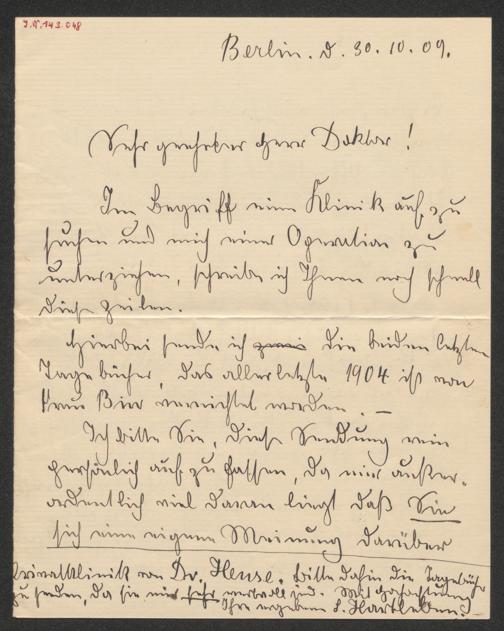 J.N. 143.048
Berlin. d. 30.10.09.
Sehr geehrter Herr Doktor!
Im Begriff eine Klinik auf zu
suchen und mich einer Operation zu
unterziehen, schreibe ich Ihnen noch schnell
diese Zeilen.
Hierbei sende ich die beiden letzten
Tagebücher, das allerletzte 1904 ist von
Frau Bier vernichtet worden. —
Ich bitte Sie, diese Sendung rein
persönlich auf zu fassen, da mir außer-
ordentlich viel daran liegt daß Sie
sich eine eigene Meinung darüber
Privatklinik von Dr. Heuse. bitte dahin die Tagebücher
zu senden, da sie mir sehr wertvoll sind. Mit Hochachtung
Ihre ergebene S. Hartleben.